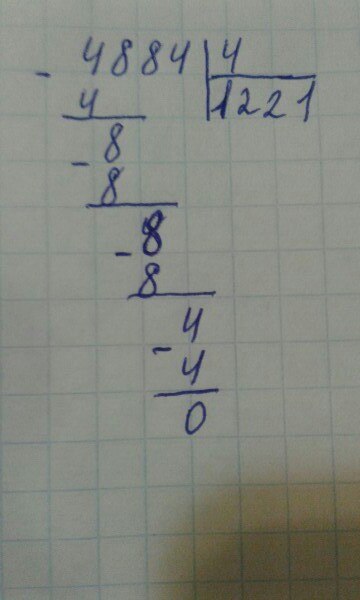 - 4884 | 4
4 1221
- 8
8
- 8
8
- 4
4
0